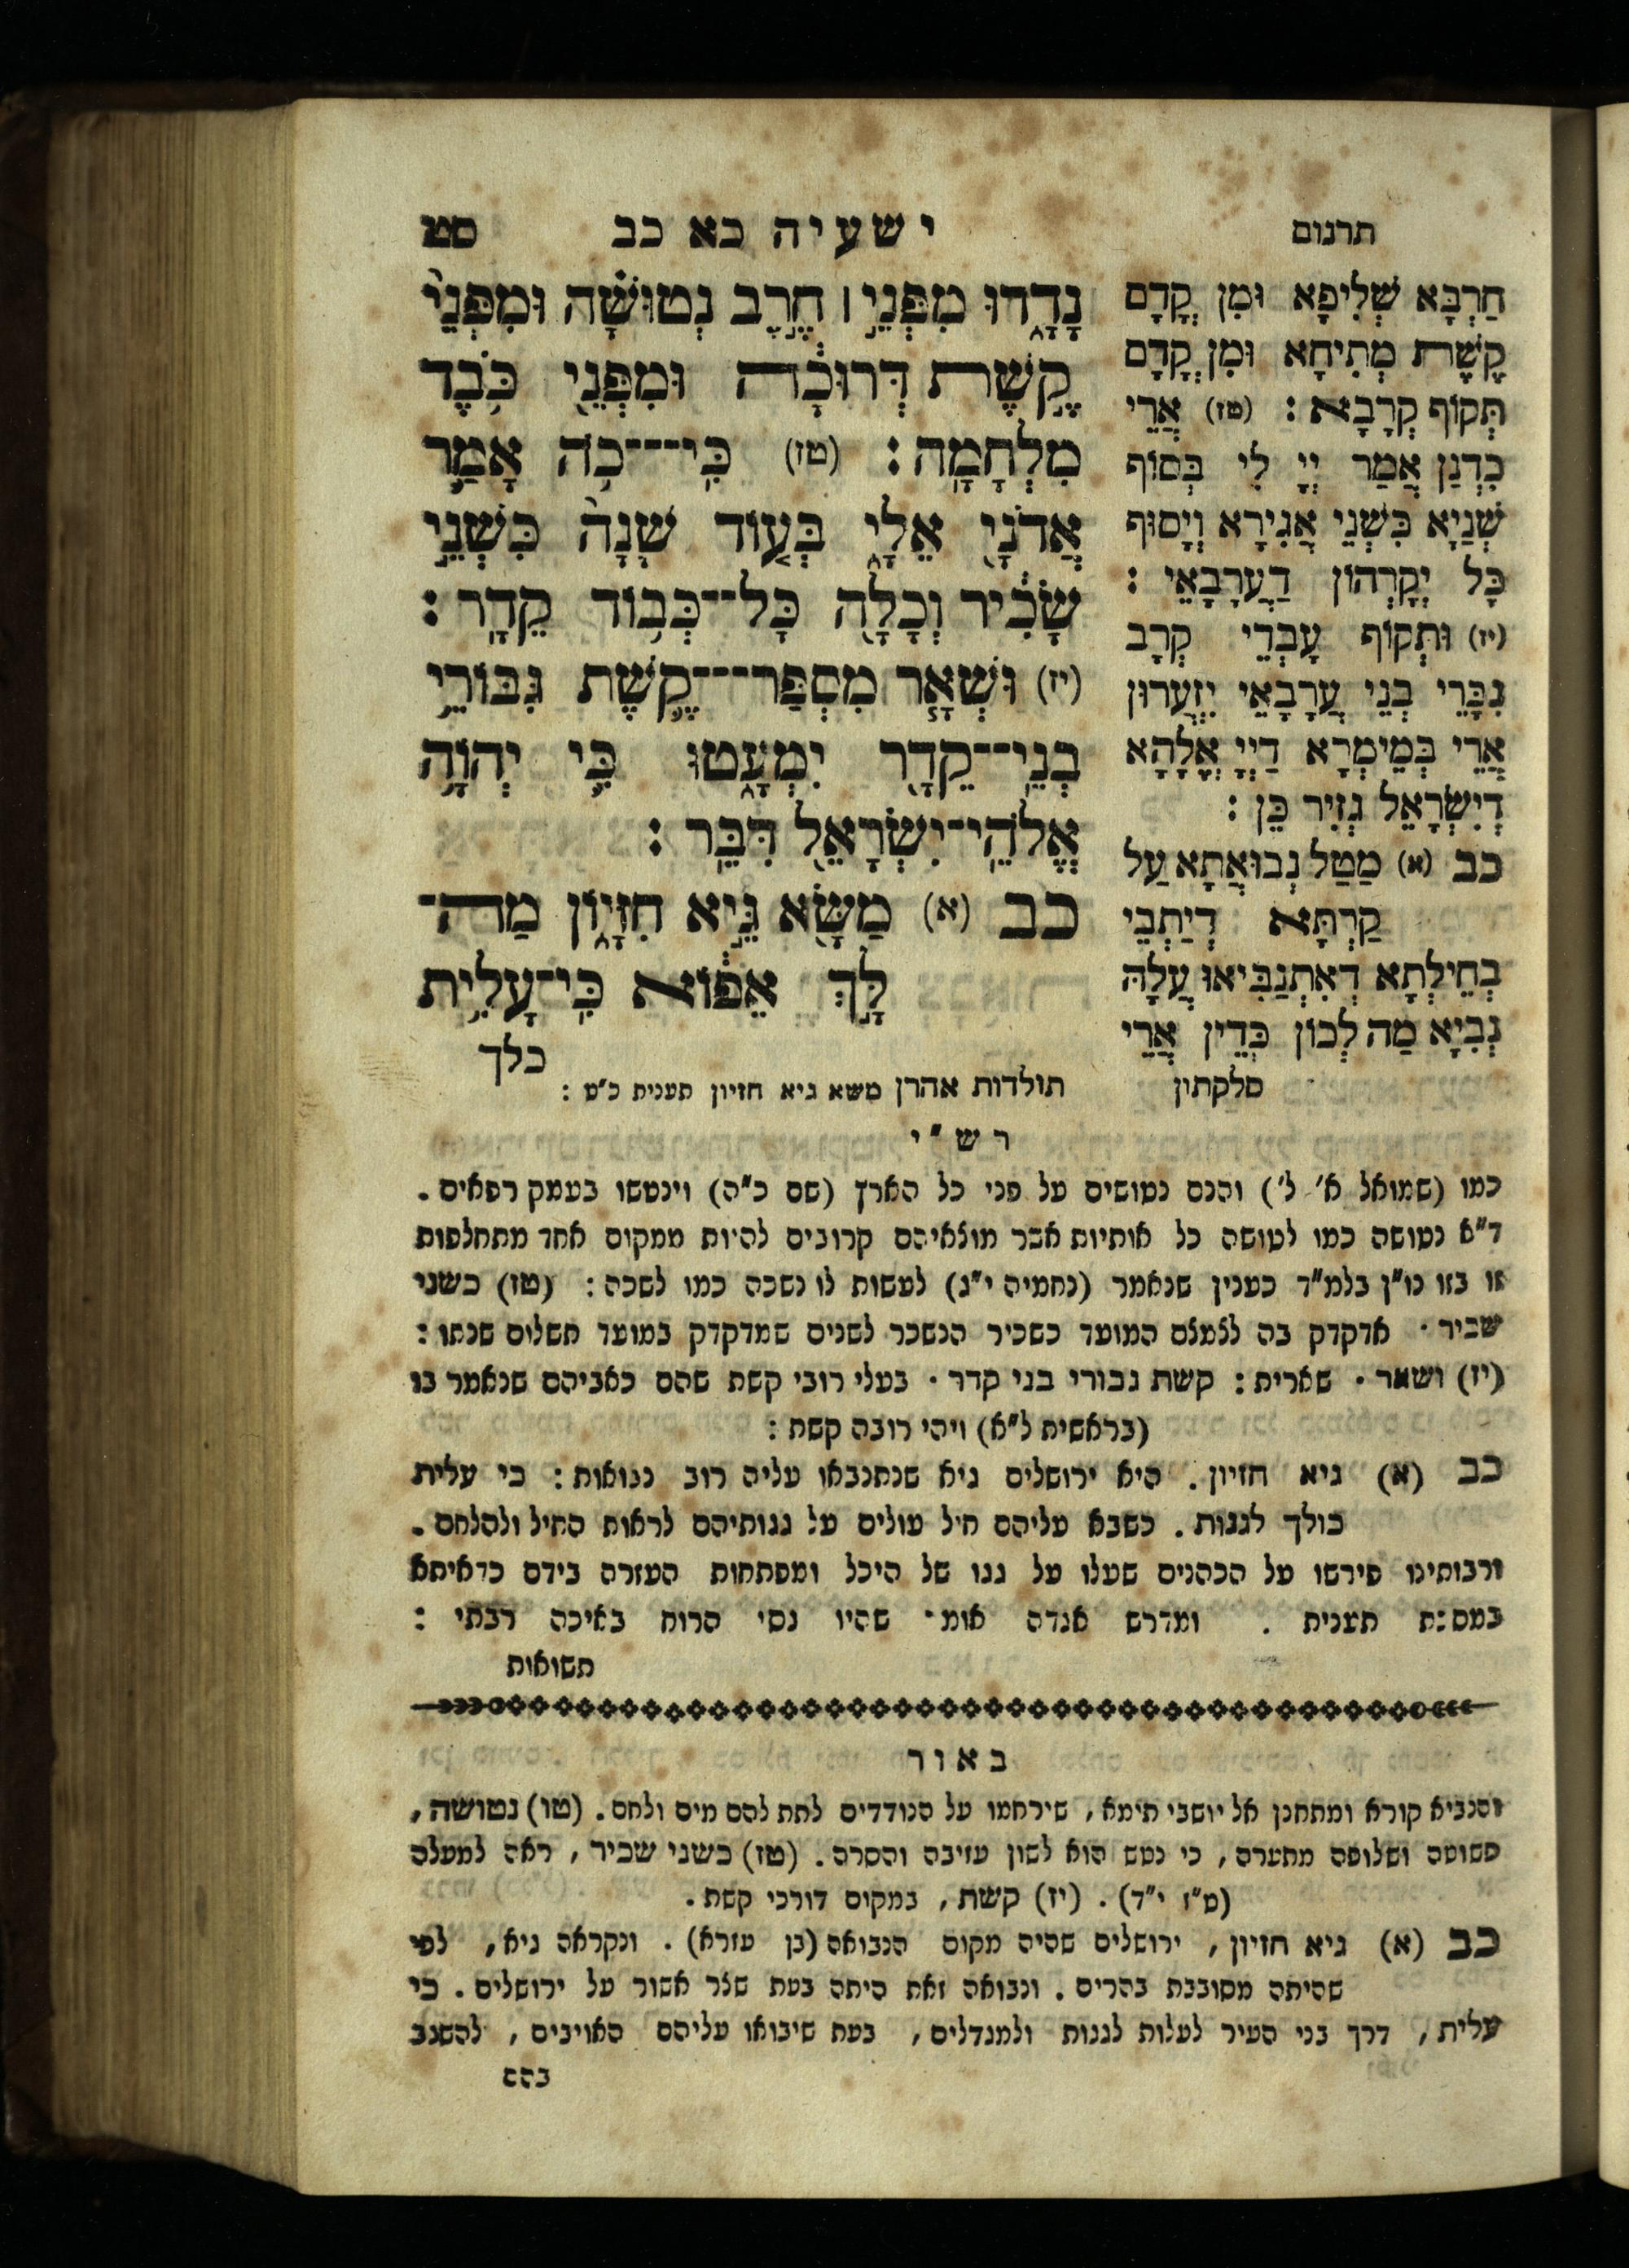 תרגום
ישעיה כא כב
סט
נָדָ֑דוּ מִפְּנֵ֣י ׀ חֶ֣רֶב נְטוּשָׁ֗ה וּמִפְּנֵי֙
קֶ֣שֶׁת דְּרוּכָ֔ה וּמִפְּנֵ֖י כֹּ֥בֶד
מִלְחָמָֽה : (טז) כִּֽי־כֹ֛ה אָמַ֥ר
אֲדֹנָ֖י אֵלָ֑י בְּע֤וֹד שָׁנָה֙ כִּשְׁנֵ֣י
שָׂכִ֔יר וְכָלָ֖ה כָּל־כְּב֥וֹד קֵדָֽר :
(יז) וּשְׁאָ֧ר מִסְפַּר־קֶ֛שֶׁת גִּבּוֹרֵ֥י
בְנֵֽי־קֵדָ֖ר יִמְעָ֑טוּ כִּ֛י יְהוָ֥ה
אֱלֹהֵֽי־יִשְׂרָאֵ֖ל דִּבֵּֽר :
כב (א) מַשָּׂ֖א גֵּ֣יא חִזָּי֑וֹן מַה־
לָּ֣ךְ אֵפ֔וֹא כִּֽי־עָלִ֥ית
כלך
חַרְבָּא שְׁלִיפָא וּמִן קֳדָם
קֶשֶׁת מְתִיחָא וּמִן קֳדָם
תְּקוֹף קְרָבָא : (טז) אֲרֵי
כִדְנַן אֲמַר יְיָ לִי בְּסוֹף
שְׁנַיָא כִּשְׁנֵי אֲגִירָא וְיָסוּף
כָּל יְקָרְהוֹן דַעֲרָבָאֵי :
(יז) וּתְקוֹף עָבְדֵי קְרָב
גִבָּרֵי בְּנֵי עֲרָבָאֵי יִזְעֲרוּן
אֲרֵי בְּמֵימְרָא דַיְיָ אֱלָהָא
דְיִשְׂרָאֵל גְזִיר כֵּן :
כב (א) מַטַל נְבוּאֲתָא עַל
קַרְתָּא דְיַתְבֵי
בְחֵילְתָא דְאִתְנַבִּיאוּ עֲלָהּ
נְבִיָא מַה לְכוֹן כְּדֵין אֲרֵי
סלקתין
תולדות אהרן משא גיא חזיון תענית כ״ט :
רש״י
כמו (שמואל א׳ ל׳) והנם נטושים על פני כל הארץ (שם כ״ה) וינטשו בעמק רפאים .
ד״א נטושה כמו לטושה כל אותיות אשר מוצאיהם קרובים להיות ממקום אחד מתחלפות
זו בזו נו״ן בלמ״ד כענין שנאמר (נחמיה י״ג) לעשות לו נשכה כמו לשכה : (טז) כשני
שכיר · אדקדק בה לצמצם המועד כשכיר הנשכר לשנים שמדקדק במועד תשלום שנתו :
(יז) ושאר · שארית : קשת גבורי בני קדר · בעלי רובי קשת שהם כאביהם שנאמר בו
(בראשית ל״א) ויהי רובה קשת :
כב (א) גיא חזיון . היא ירושלים גיא שנתנבאו עליה רוב נבואות : כי עלית
כולך לגגות . כשבא עליהם חיל עולים על גגותיהם לראות החיל ולהלחם .
ורבותינו פירשו על הכהנים שעלו על גגו של היכל ומפתחות העזרה בידם כדאיתא
במסכת תענית . ומדרש אגדה אומ׳ שהיו גסי הרוח באיכה רבתי :
תשואות
באור
והנביא קורא ומתחנן אל יושבי תימא , שירחמו על הנודדים לתת להם מים ולחם . (טו) נטושה ,
פשוטה ושלופה מתערה , כי נטש הוא לשון עזיבה והסרה . (טז) כשני שכיר , ראה למעלה
(ט״ז י״ד) . (יז) קשת , במקום דורכי קשת .
כב (א) גיא חזיון , ירושלים שהיה מקום הנבואה (בן עזרא) . ונקראה גיא , לפי
שהיתה מסובבת בהרים . ונבואה זאת היתה בעת שצר אשור על ירושלים . כי
עלית , דרך בני העיר לעלות לגגות ולמגדלים , בעת שיבואו עליהם האויבים , להשגב
בהם